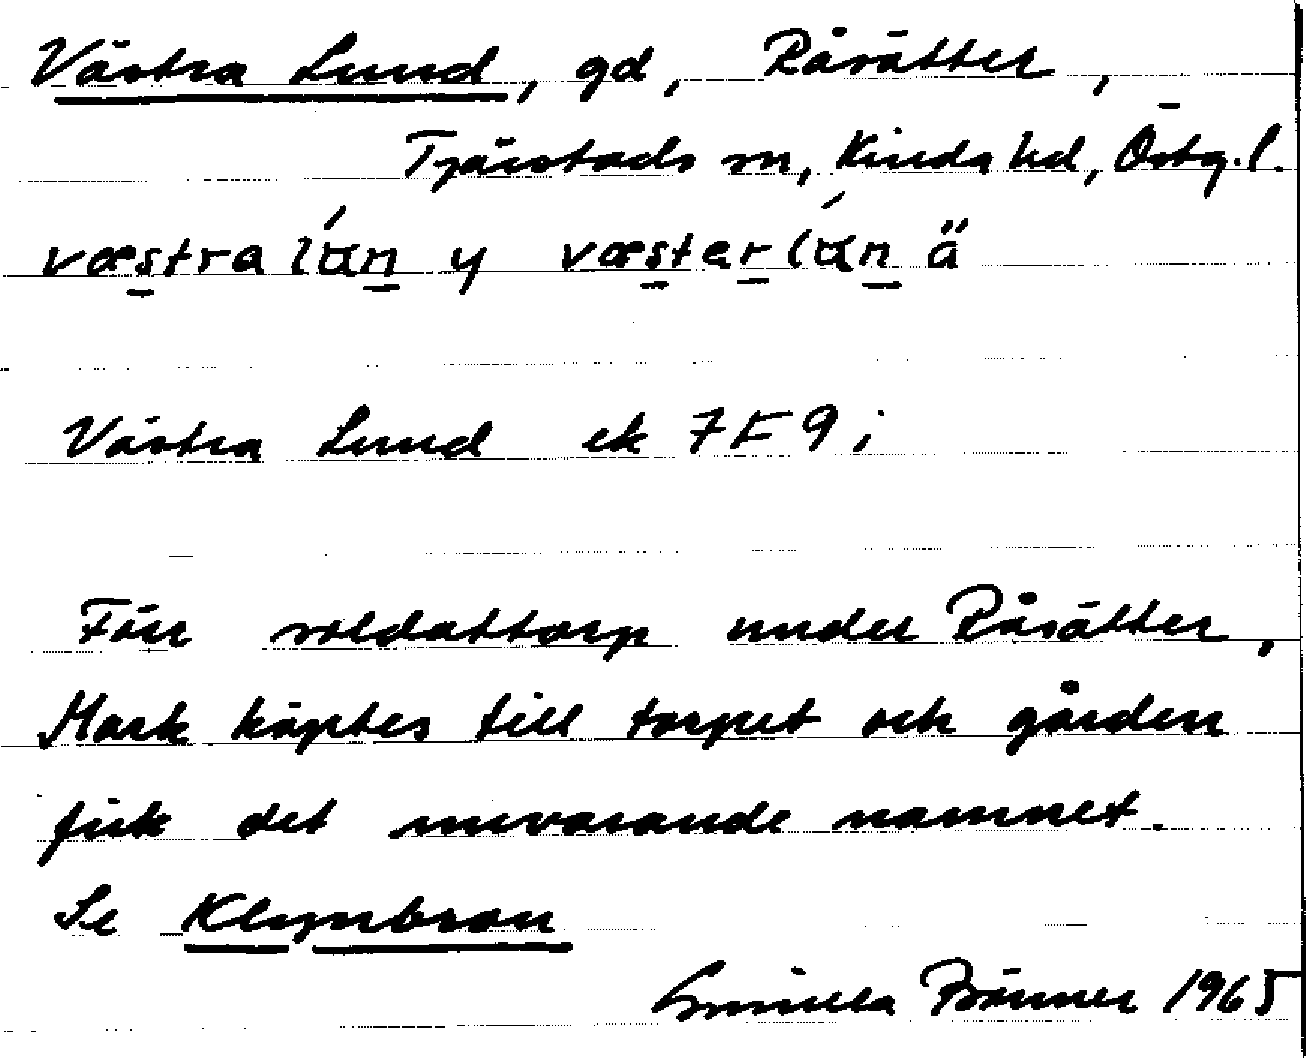 Västra Lund, gd, Råsätter,
Tjärstads sn, Kinda hd, Östg. l.
væstra lɑ́n y væster lɑ́n ä
Västra Lund ek 7F9i
Förr soldattorp under Råsätter.
Mark köptes till torpet och gården
fick det nuvarande namnet.
Se Klynbron
Gunilla Brönner 1965